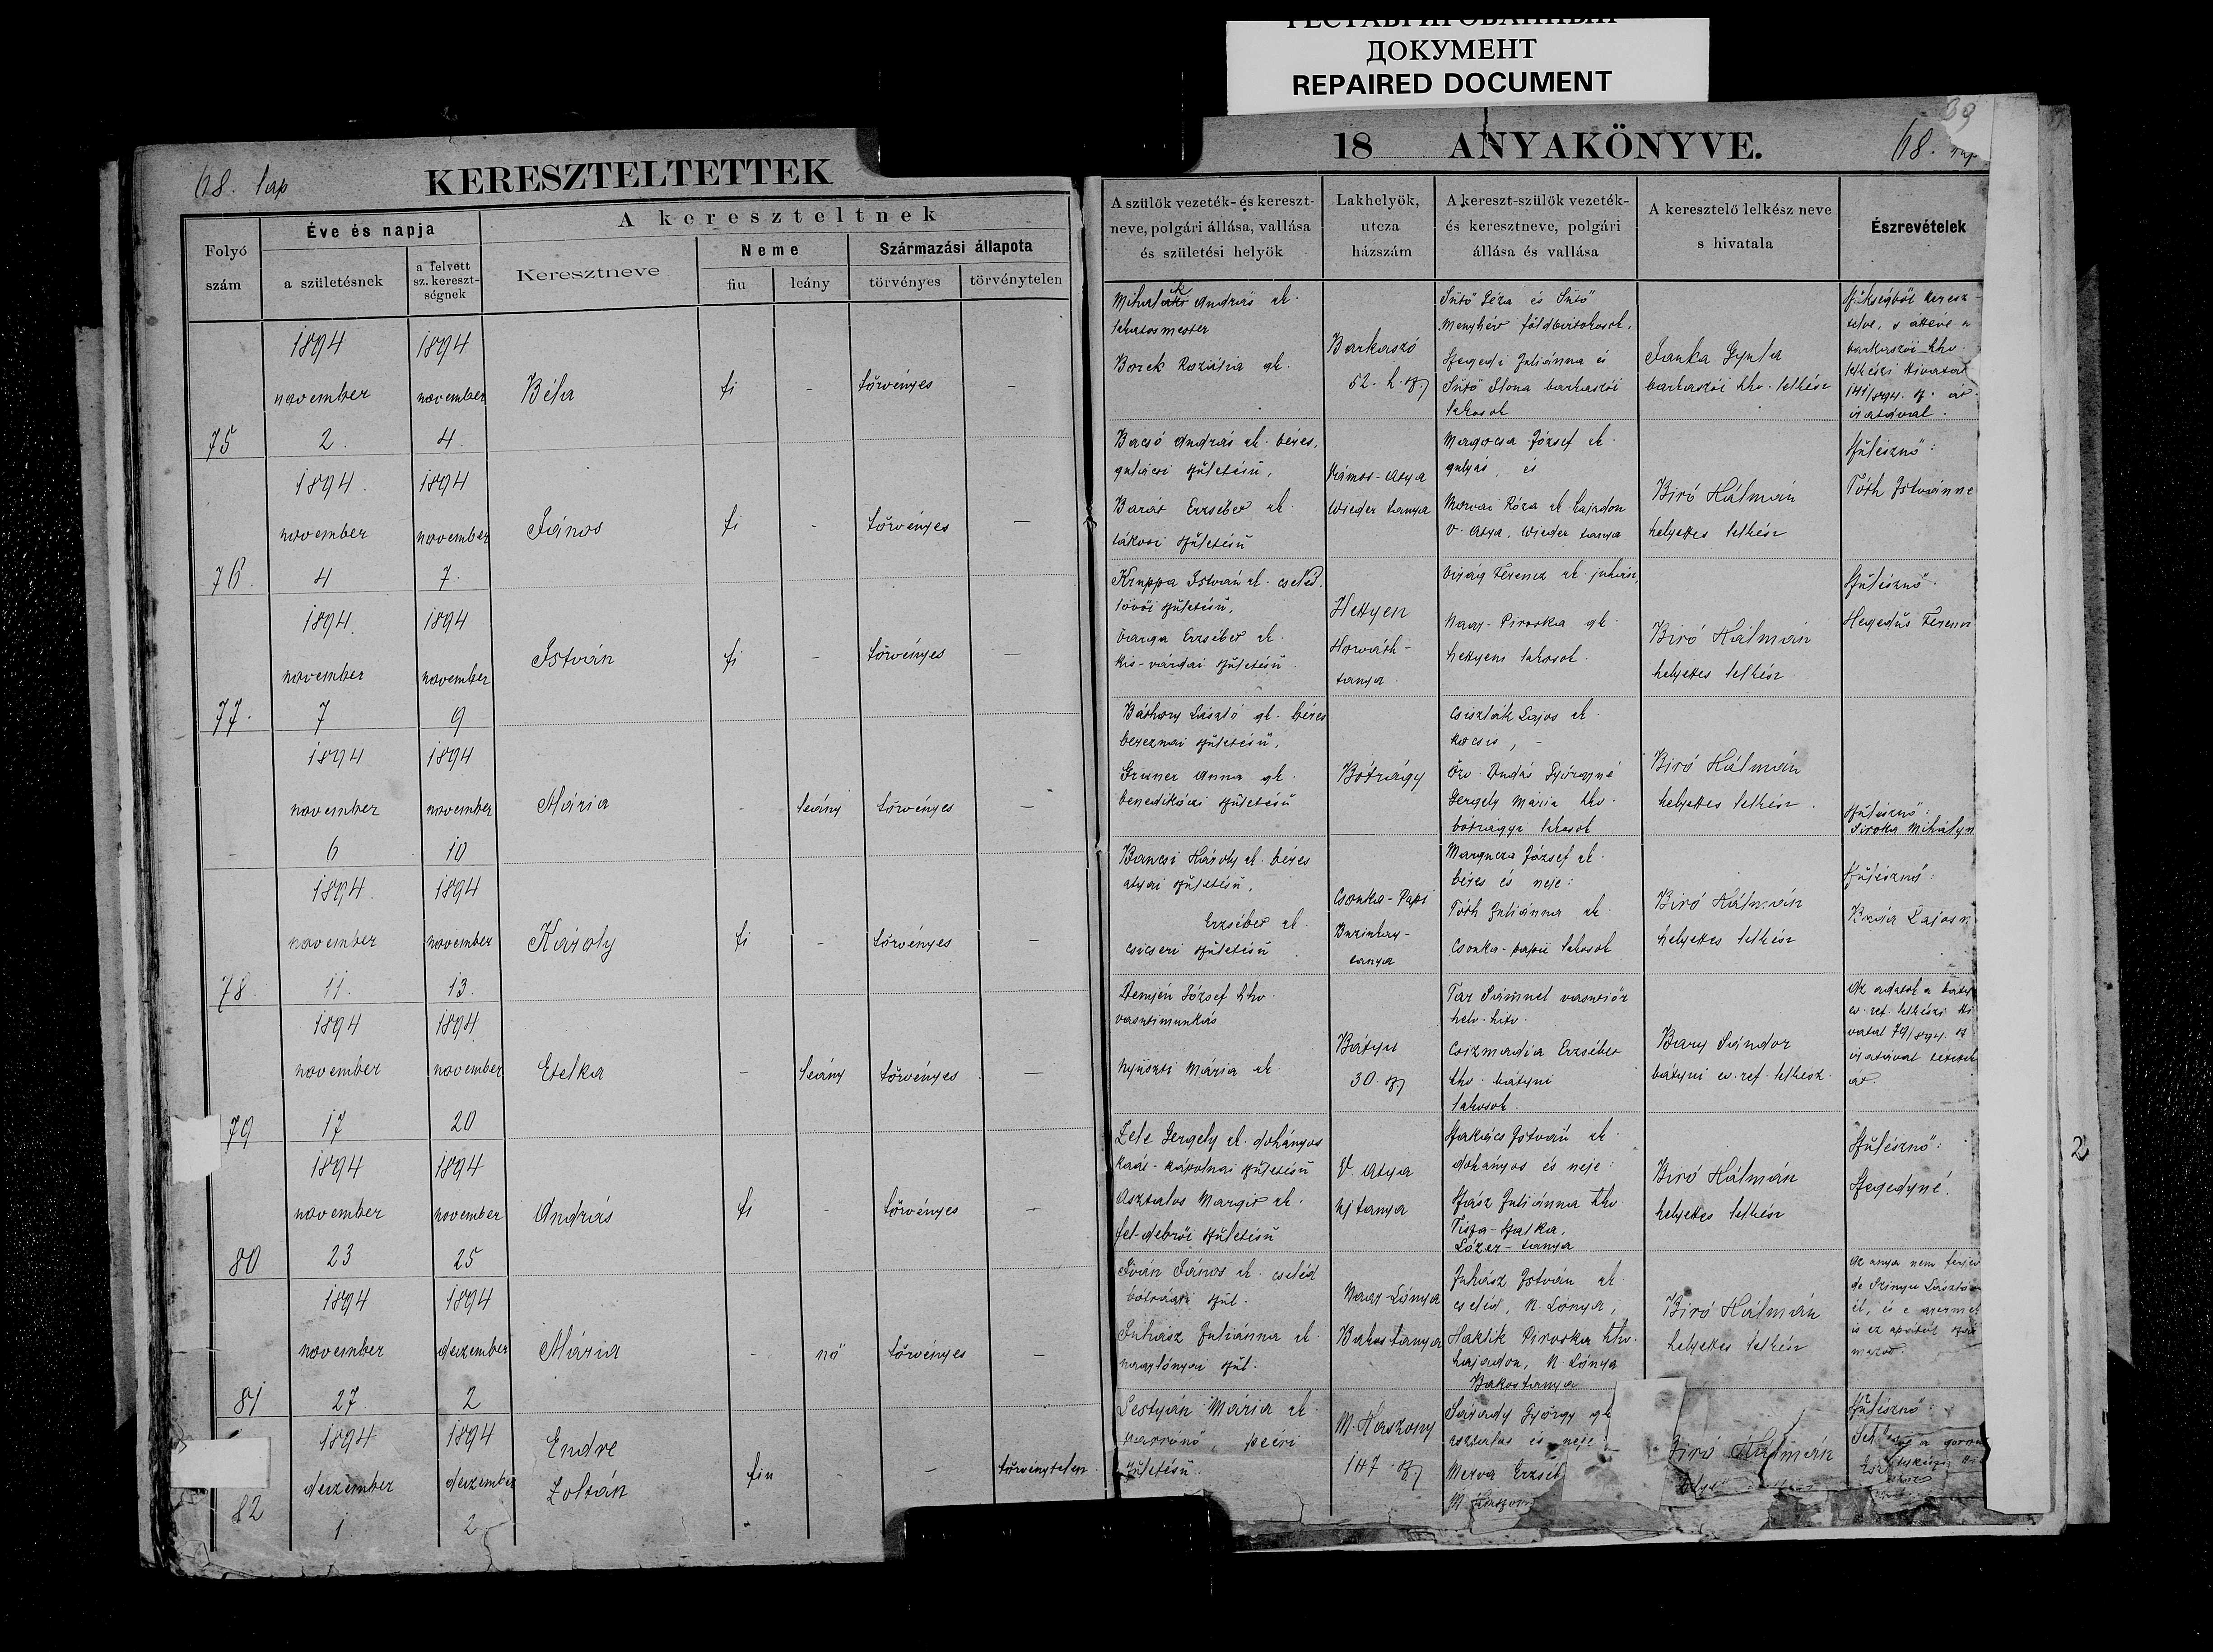 РЕСТАВРИРОВАННЫЙ
ДОКУМЕНТ
REPAIRED DOCUMENT
68. lap
KERESZTELTETTEK
18 ANYAKÖNYVE.
68. lap
Folyó
szám
Éve és napja
a születésnek
a felvett
sz. kereszt-
ségnek
A kereszteltnek
Keresztneve
Neme
fiu
leány
Származási állapota
törvényes
törvénytelen
A szülök vezeték- és kereszt-
neve, polgári állása, vallása
és születési helyök
Lakhelyök,
utcza
házszám
A kereszt-szülök vezeték-
és keresztneve, polgári
állása és vallása
A keresztelő lelkész neve
s hivatala
Észrevételek
75
1894
november
2.
1894
november
4.
Béla
fi
-
törvényes
-
András rk.
lakatosmester
Borek Rozália gk.
Barkaszó
52. h. sz
Sütő Géza és Sütő
Menyhért földbirtokosok,
Szegedi Juliánna és
Sütő Ilona barkaszói
lakosok
Janka Gyula
barkaszói hhv. lelkész
Szükségből keresz-
telve, s áttéve a
barkaszói hhv.
lelkészi hivatal
141/894. sz. át-
iratával.
76.
1894.
november
4
1894
november
7.
János
fi
-
törvényes
-
Bacsó András rk. béres,
gulácsi születésü,
Barát Erzsébet rk.
tákosi születésü
Vámos-Atya
Wieder tanya
Magocsa József rk.
gulyás, és
Morvai Róza rk. hajadon
V. Atya, Wieder tanya
Biró Kálmán
helyettes lelkész
Szülésznő:
Tóth Istvánné
77.
1894.
november
7
1894
november
9
István
fi
-
törvényes
-
Kruppa István rk. cseléd,
lövői születésü,
Varga Erzsébet rk.
kis-várdai születésü.
Hetyen
Horváth-
tanya.
Virág Ferencz rk. juhász,
Nagy-Piroska gk.
hetyeni lakosok.
Biró Kálmán
helyettes lelkész.
Szülésznő
Hegedűs Ferencn
-
1894
november
6
1894
november
10
Mária
-
leány
törvényes
-
Báthory László gk. béres
bereznai születésü,
Gruner Anna gk.
benedikóczi születésü
Bótrágy
Csiszták Lajos rk.
kocsis, -
Özv. Dudás Györgyné
Gergely Mária hhv.
bótrágyi lakosok
Biró Kálmán
helyettes lelkész.
Szülésznő:
Siroka Mihályn
78.
1894.
november
11.
1894
november
13.
Károly
fi
-
törvényes
-
Bancsi Károly rk. béres
atyai születésü,
Erzsébet rk.
csicseri születésü
Csonka-Papi
Buzinkay-
tanya
József rk.
béres és neje:
Tóth Juliánna rk.
Csonka-papii lakosok
Biró Kálmán
helyettes lelkész
Szülésznő:
Lajosn
79
1894
november
17
1894.
november
20
Etelka
-
leány
törvényes
-
Demjén József hhv.
vasutimunkás
Nyüszti Mária rk.
Bátyu
30. sz
Tar Sámuel vasutiőr
helv. hitv.
Csizmadia Erzsébet
hhv. bátyui
lakosok.
Bary Sándor
bátyui ev. ref. lelkész.
Az adatok a báty
ev. ref. lelkészi hi
vatal 79/894. sz
iratával tétetek
át.
80
1894
november
23
1894
november
25
András
fi
-
törvényes
-
Lele Gergely rk. dohányos
kaál-kápolnai születésü
Asztalos Margit rk.
fel-debrői születésü
V. Atya
Uj tanya
Szakács István rk.
dohányos és neje:
Szász Juliánna hhv.
Tisza-Szalka,
Lázár-tanya
Biró Kálmán
helyettes lelkész
Szülésznő:
Szegedyné.
81
1894
november
27.
1894
deczember
2
Mária
-
nő
törvényes
-
Iván János rk. cseléd
bótrágyi szül.
Juhász Juliánna rk.
nagylónyai szül.
Nagy-Lónya
Bakos tanya
Juhász István rk.
cseléd, N. Lónya,
Haklik Piroska hhv.
hajadon, N. Lónya
Bakostanya
Biró Kálmán
helyettes lelkész
Az anya nem
de Szinyu László
és e gyermek
is ez apától szár
mazott.
82
1894
deczember
1.
1894
deczember
2
Endre
Zoltán
fiu
-
-
törvénytelen.
Lestyán Mária rk.
varrónő, peéri
születésü.
M. Kaszony
147. sz
György gk
asztalos és neje
Erzséb
M. Kaszony
Biró Kálmán
Szülésznő:
2